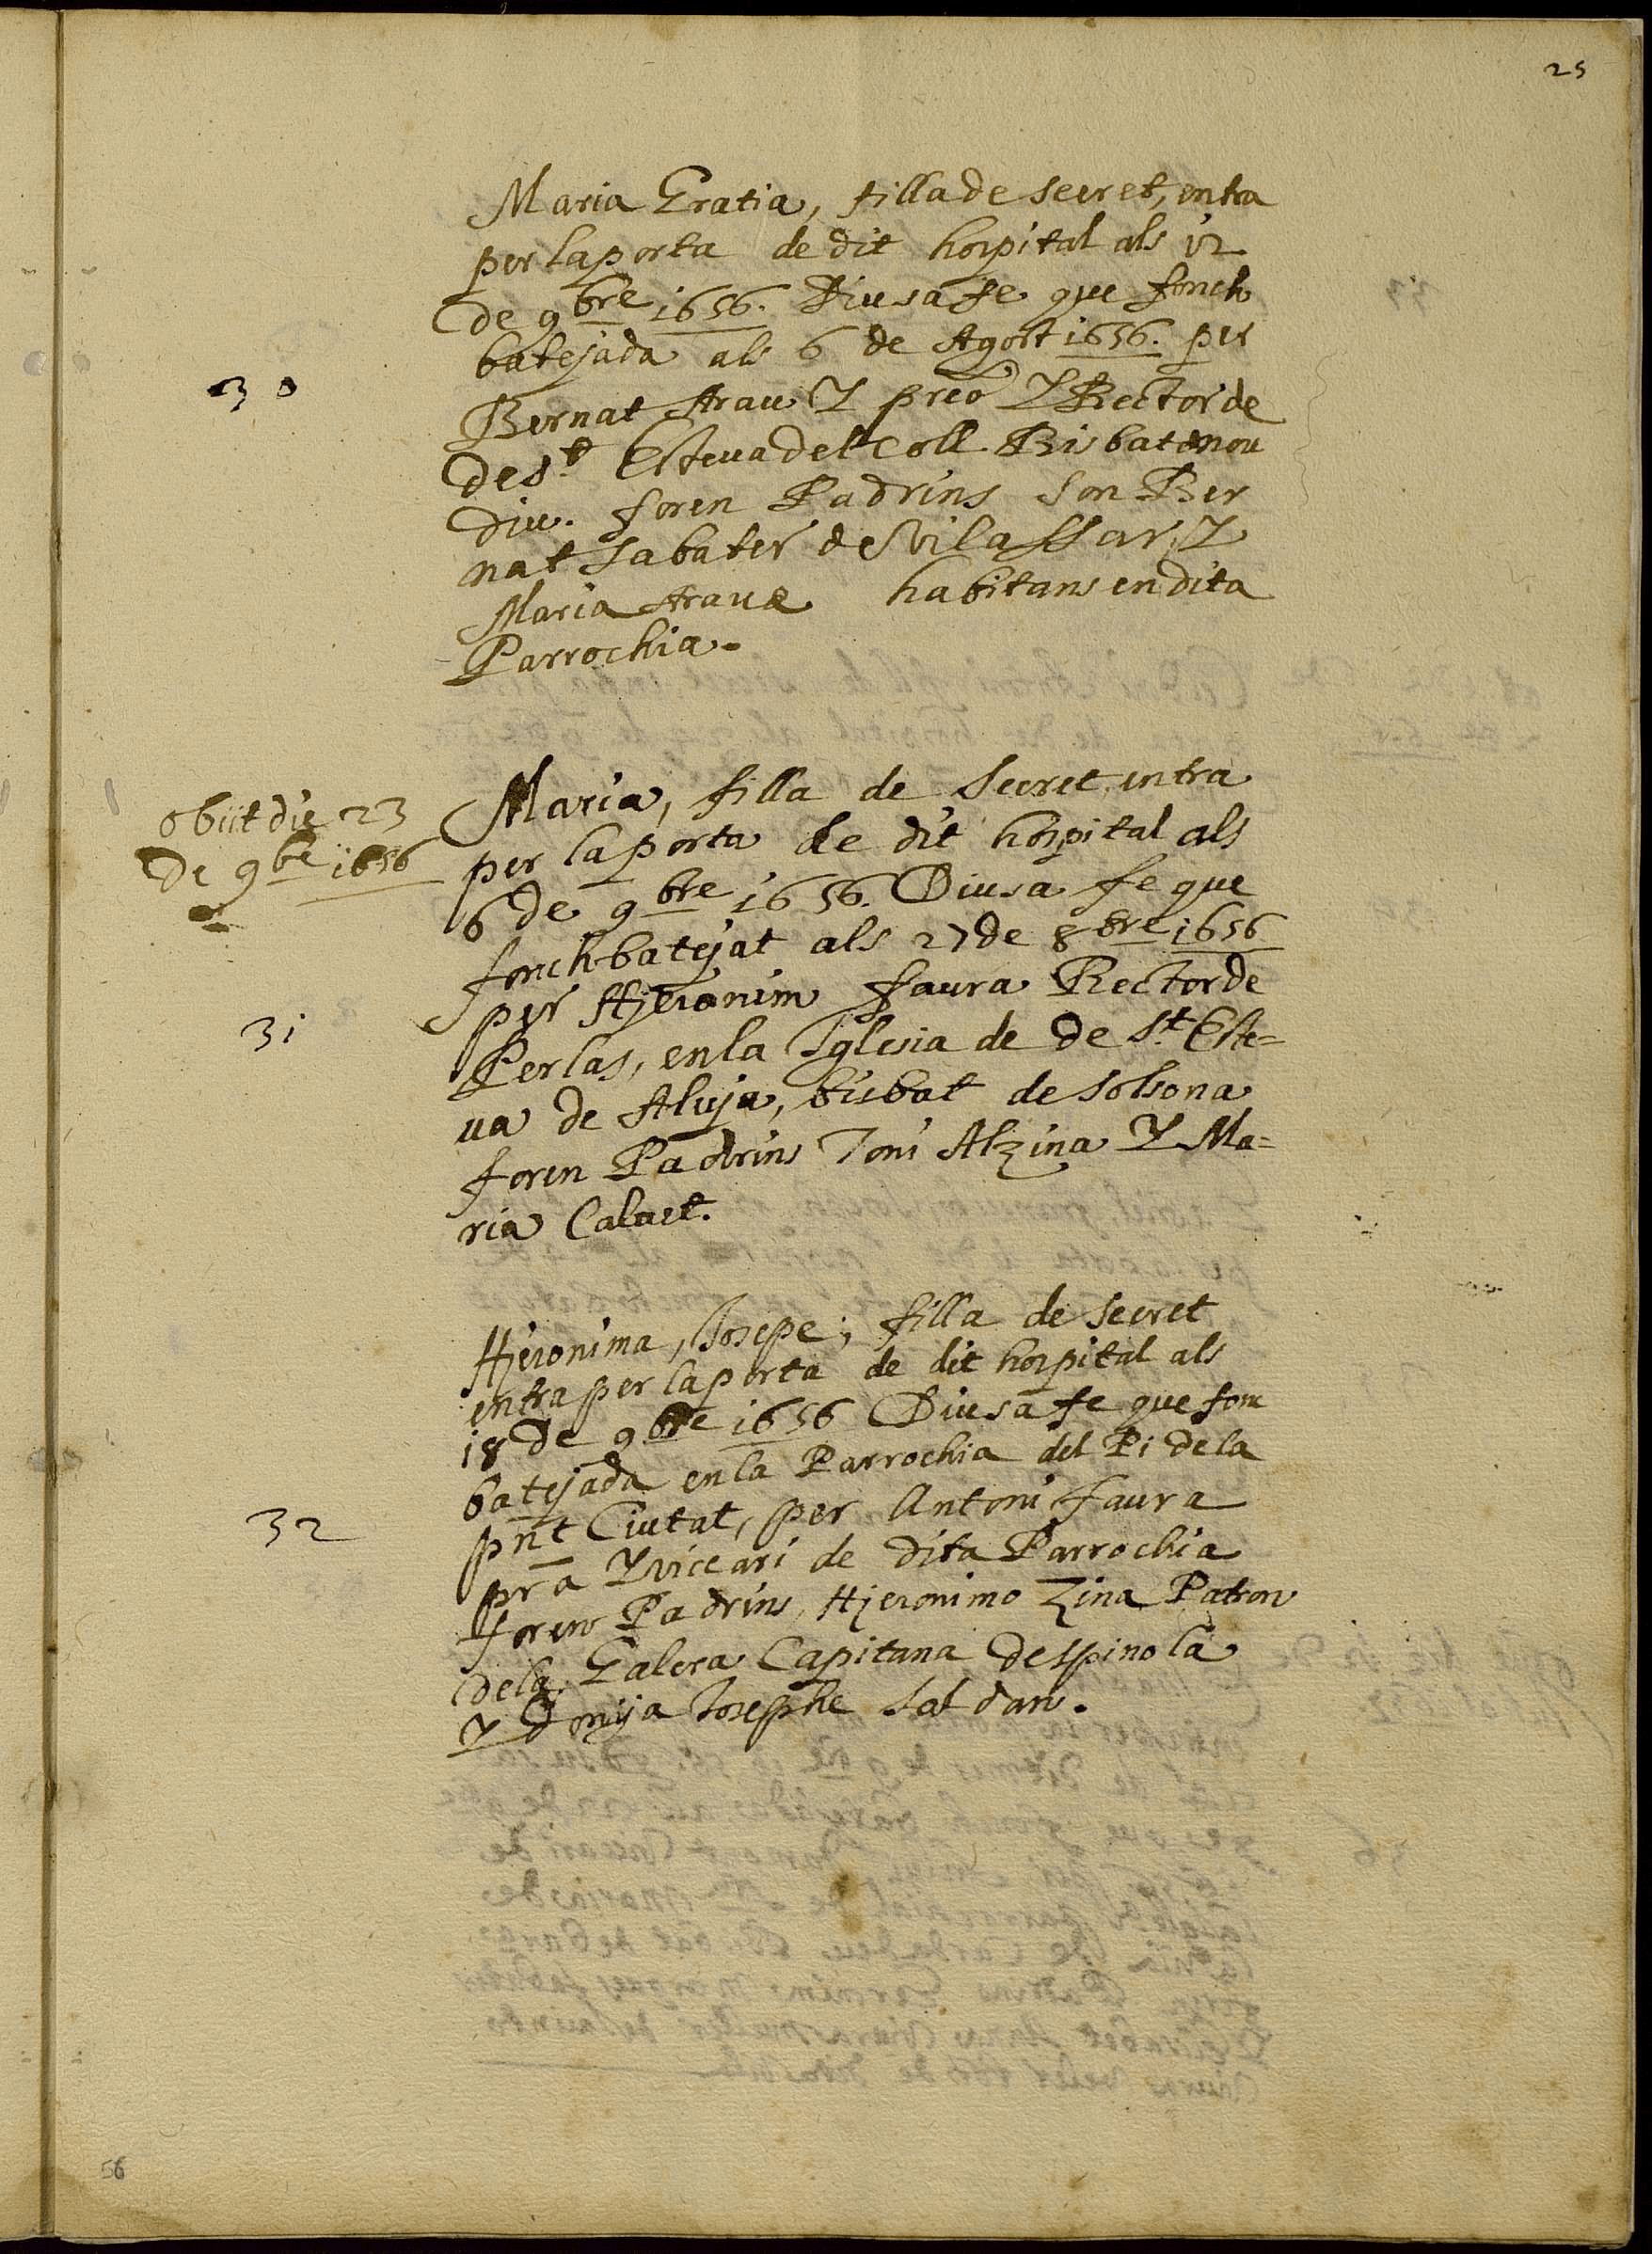 25
Maria Gratia, filla de secret, entra
per la porta de dit hospital als 12
de 9bre 1656. Diu sa fe que fonch
batejada als 6 de Agost 1656. per
30
Bernat Arau Y preō Y Rector de
de St Esteva del Coll Bisbat
diu. foren Padrins Son Ber
nat Sabater de Vilassar, Y
Maria Araus habitans en dita
Parrochia.
obiit die 23
De 9bre 1656
Maria, filla de Secret, entra
per la porta de dit hospital als
6 de 9bre 1656. Diu sa fe que
fonch batejat als 27 de 8bre 1656
per Hjeronim faura Rector de
31
Perlas, en la Iglesia de de St. Este=
va de Aluja, bisbat de Solsona
foren Padrins Toni Alzina Y Ma=
ria Calvet.
Hjeronima, Josepe, filla de secret
entra per la porta de dit hospital als
18 de 9bre 1656 Diu sa fe que fonc
batejada en la Parrochia del Pi de la
32
pnt Ciutat, per Antoni faura
pra Y viccari de dita Parrochia
foren Padrins, Hjeronimo Zina Patron
de la Galera Capitana despinola
Y Josephe Saldan.
56